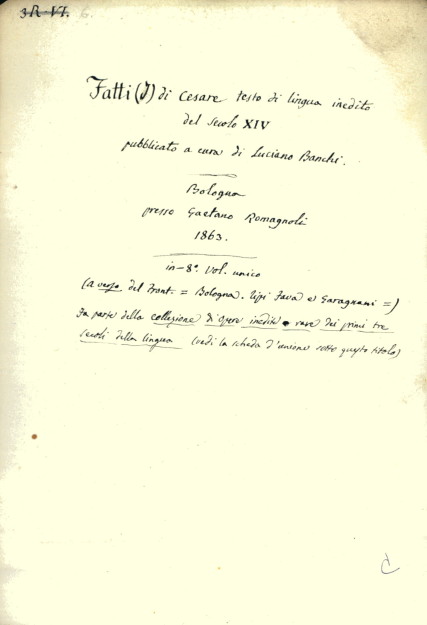 3R-VI. 6
Fatti (I) di Cesare testo di lingua inedito
del secolo XIV
pubblicato a cura di Luciano Banchi.
Bologna
presso Gaetano Romagnoli
1863.
in-8.° vol. unico
(a verso del Front. = Bologna. Tipi Fava e Garagnani =)
Fa parte della collezione di opere inedite o rare dei primi tre
secoli della lingua (vedi la scheda d'unione sotto questo titolo)
C